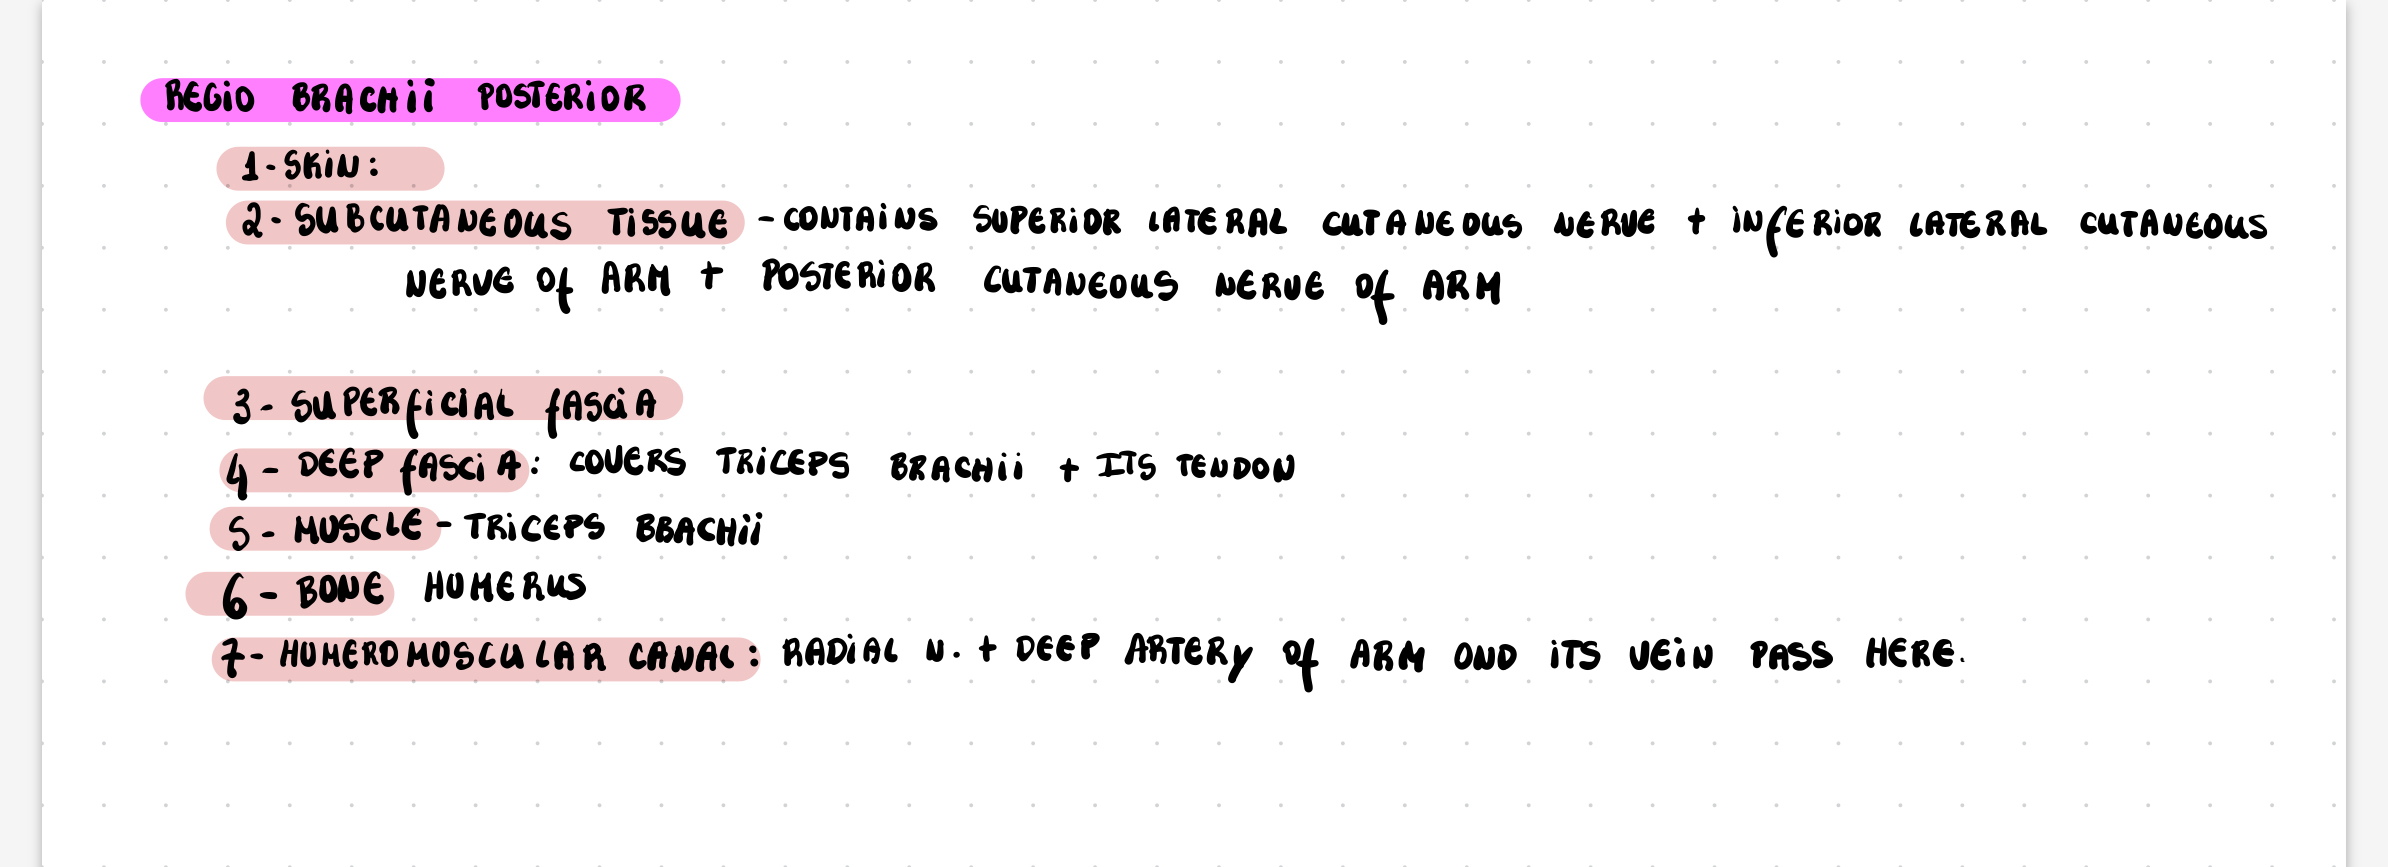 REGiO BRACHii POSTERiOR
1-SKiN:
2-SUBCUTANEOUS TiSSUE - CONTAiNS SUPERiOR LATERAL CUTANEOUS NERVE + iNfERiOR LATERAL CUTANEOUS
NERVE Of ARM + POSTERiOR CUTANEOUS NERVE Of ARM
3- SUPERfiCIAL fASCiA
4- DEEP fASCiA: COVERS TRiCEPS BRACHii + ITS TENDON
5- MUSCLE - TRiCEPS BBACHii
6- BONE HUMERUS
7- HUMEROMUSCULAR CANAL: RADiAL N. + DEEP ARTERy Of ARM OND iTS VEiN PASS HERE.